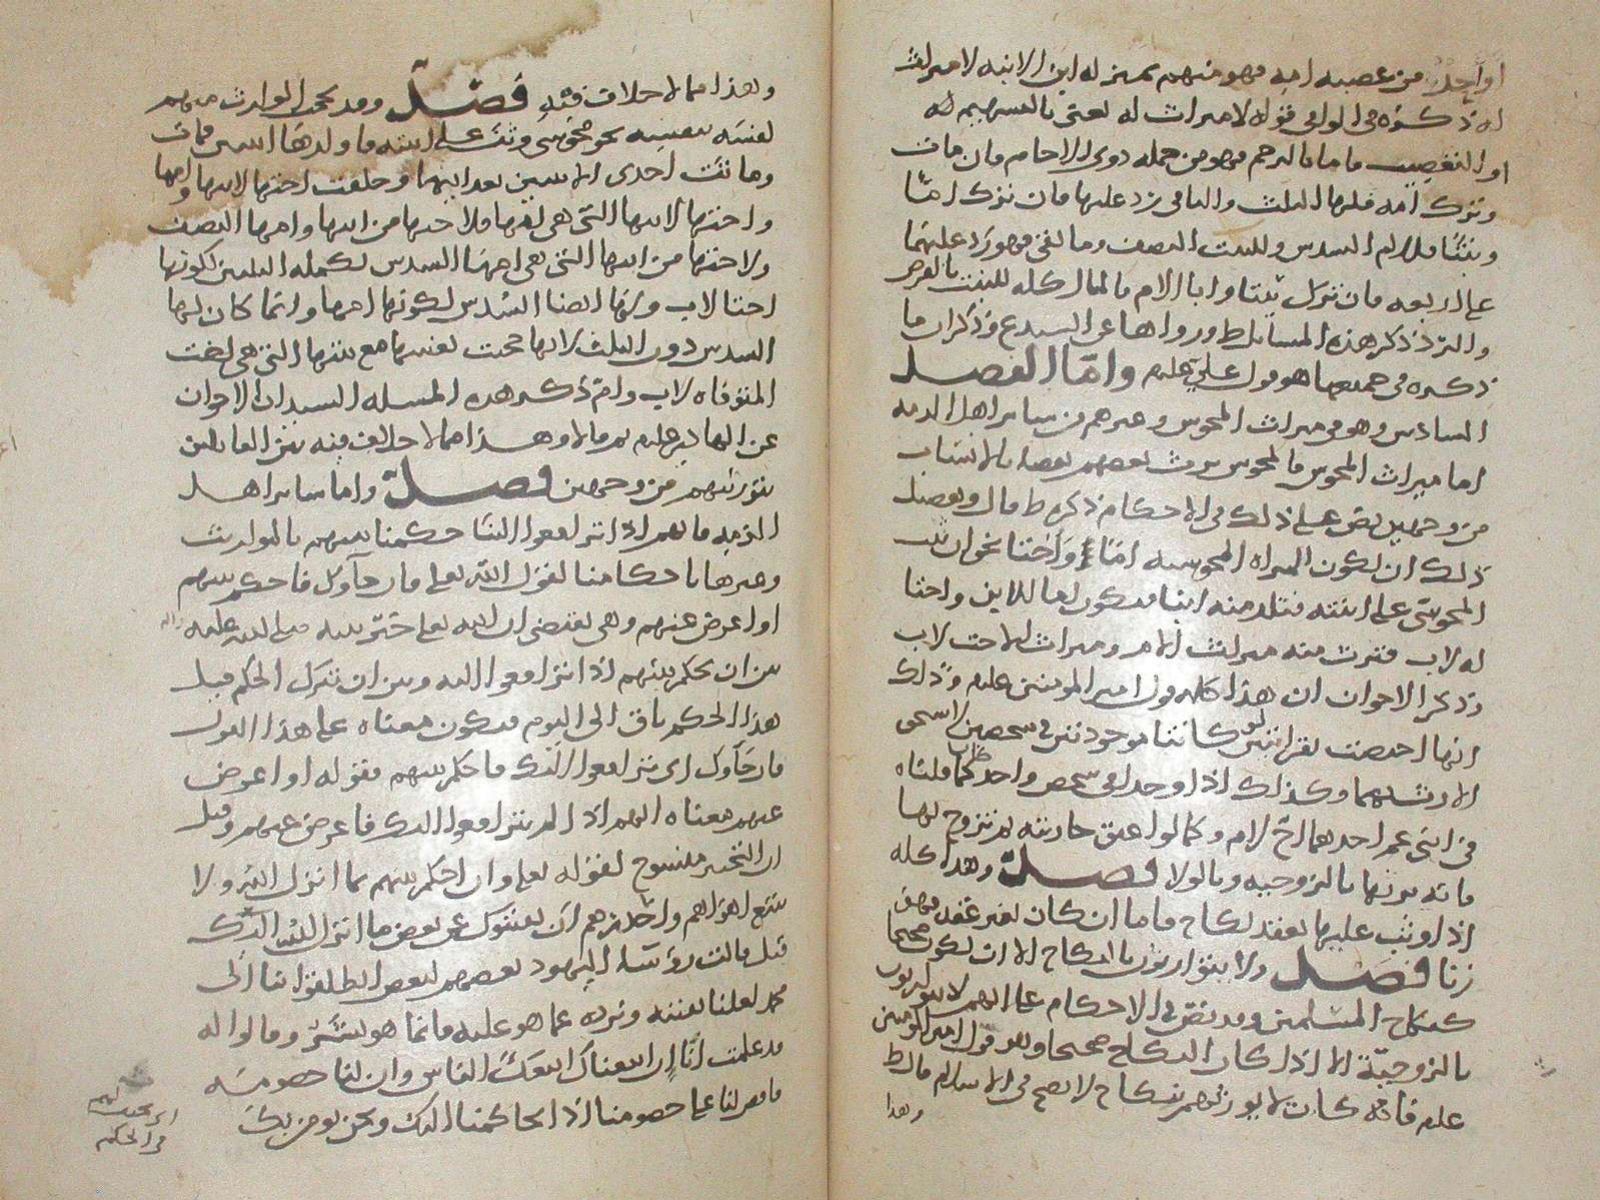 او واحد من عصبه امه فهو منهم بمنزله ابن الابنه لا ميراث
له ذكره في الوافي قوله لا ميراث له يعني بالتسهيم له
او التعصيب فاما بالرحم فهو من جمله ذوي الارحام فان مات
وترك امه فلها الثلث والباقي يرد عليها فان ترك امًا
وبنتًا فللام السدس وللبنت النصف وما بقي فهو رد عليهما
على اربعه فان ترك بنتا وابا لام فالمال كله للبنت بالفرض
والرد ذكر هذه المسائل ط ورواها عن السيد ع وذكر ان ما
ذكره في جميعها هو قول علي عليلم واما الفصل
السادس وهو في ميراث المجوس وغيرهم من سائر اهل الذمه
اما ميراث المجوس فالمجوس يرث بعضهم بعضا بالانساب
من وجهين نص على ذلك في الاحكام ذكره ط قال وتفصيل
ذلك ان تكون المراه المجوسيه امًا واختا نحو ان يثب
المجوسي على ابنته فتلد منه ابنا فتكون اما للابن واختا
له لاب فترث منه ميراث الام وميراث الاخت لاب
وذكر الاخوان ان هذا كله قول امير المومنين عليلم وذلك
انها اختصت بقرابتين لو كانتا موجودتين في شخصين لاستحق
الارث بهما وكذلك اذا وجدا في شخص واحد كما قلناه
في ابني عم احدهما اخ لام وكما لو اعتق جاريته ثم تزوج بها
فانه يرثها بالزوجيه وبالولا فصل وهذا كله
اذا وثب عليها بعقد نكاح فاما ان كان بغير عقد فهو
زنا فصل ولا يتوارثون بالنكاح الا ان يكون صحيحا
كنكاح المسلمين وقد نص في الاحكام على انهم لا يتوارثون
بالزوجية الا اذا كان النكاح صحيحا وهو قول امير المومنين
عليلم فانه كان لا يورثهم بنكاح لا يصح في الاسلام قال ط
وهذا
وهذا مما لا خلاف فيه فصل وقد يحجب الوارث منهم
لنفسه بنفسه نحو مجوسي وثب على ابنته فاولدها ابنتين فمات
وماتت احدى الابنتين بعد ابيها وخلفت اختها لابيها وامها
واختها لابيها التي هي امها فلاختها من ابيها وامها النصف
ولاختها من ابيها التي هي امها السدس تكمله الثلثين لكونها
اختا لاب ولها ايضا السدس لكونها امها وانما كان لها
السدس دون الثلث لانها حجبت نفسها مع بنتها التي هي اخت
المتوفاه لاب وام ذكر هذه المسله السيدان الاخوان
عن الهادي عليلم ثم قالا وهذا مما لا خلاف فيه بين القائلين
بتوريثهم من وجهين فصل واما سائر اهل
الذمه فانهم اذا ترافعوا الينا حكمنا بينهم بالمواريث
وغيرها باحكامنا لقول الله تعالى فان جاوك فاحكم بينهم
او اعرض عنهم وهي تقتضي ان الله تعالى خير نبيه صلى الله عليه واله
بين ان يحكم بينهم اذا ترافعوا اليه وبين ان يترك الحكم قيل
هذا الحكم باق الى اليوم فيكون معناه على هذا القول
فان جاوك اي ترافعوا اليك فاحكم بينهم فقوله او اعرض
عنهم معناه انهم اذا لم يترافعوا اليك فاعرض عنهم وقيل
ان التخيير منسوخ بقوله تعالى وان احكم بينهم بما انزل الله ولا
تتبع اهواهم واحذرهم ان يفتنوك عن بعض ما انزل الله اليك
قيل قالت رؤسا اليهود بعضهم لبعض انطلقوا بنا الى
محمد لعلنا نفتنه ونرده عما هو عليه فانما هو بشر وقالوا له
قد علمت انا ان اتبعناك اتبعك الناس وان لنا خصومه
فاقض لنا على خصومنا اذا تحاكمنا اليك ونحن نومن بك
من الحكم